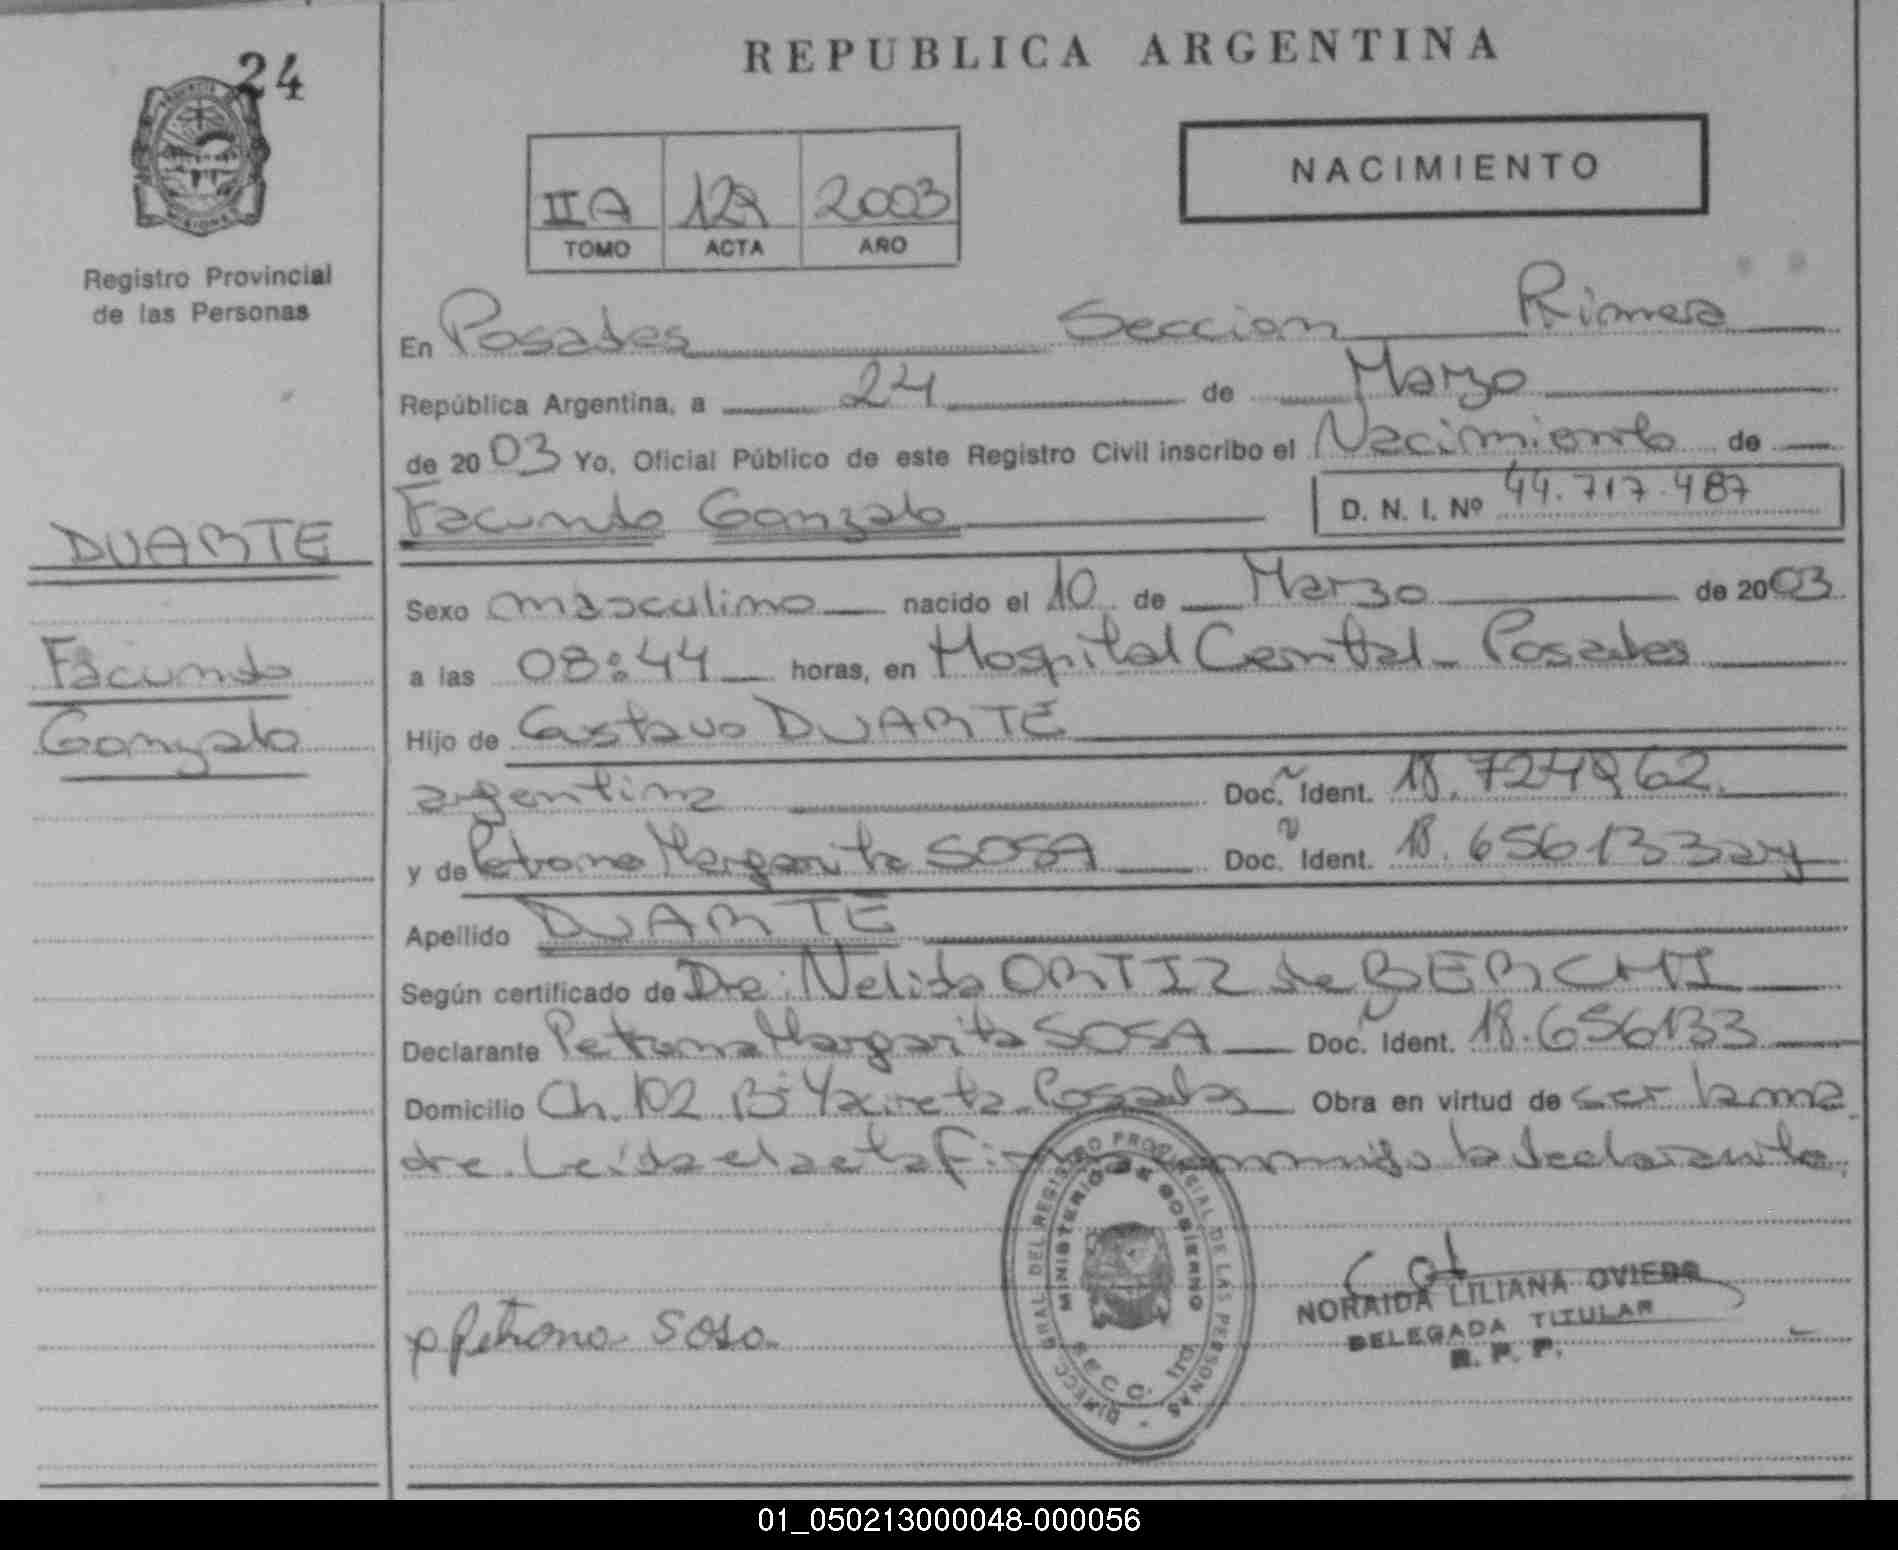 24
REPUBLICA ARGENTINA
NACIMIENTO
IIA 129 2003
TOMO ACTA AÑO
Registro Provincial
de las Personas
En Posadas Seccion Primera
República Argentina, a 24 de Marzo
de 2003 Yo, Oficial Público de este Registro Civil inscribo el Nacimiento de
Facundo Gonzalo D. N. I. Nº 44.717.487
DUARTE
Facundo
Gonzalo
Sexo masculino nacido el 10 de Marzo de 2003
a las 08:44 horas, en Hospital Central - Posadas
Hijo de Gustavo DUARTE
argentina Doc. Ident. 18.724962.
y de Petrona Margarita SOSA Doc. Ident. 18.656133 arg
Apellido DUARTE
Según certificado de Dra: Nelida ORTIZ de BERCHI
Declarante Petrona Margarita SOSA Doc. Ident. 18.656133
Domicilio Ch. 102 Bº Yacireta - Posadas Obra en virtud de ser la ma
dre. Leída el acta firma conmigo la declarante.
DIRECC. GRAL. DEL REGISTRO PROVINCIAL DE LAS PERSONAS
MINISTERIO DE GOBIERNO
SECC. 1ra
p Petrona Sosa
NORAIDA LILIANA OVIEDO
DELEGADA TITULAR
R. P. P.
01_050213000048-000056